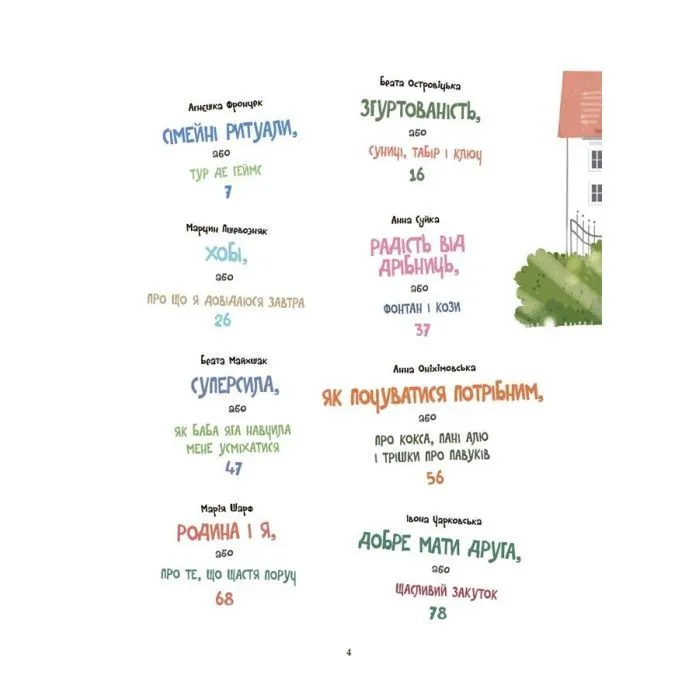 Агнєшка Фронцек
СІМЕЙНІ РИТУАЛИ,
або
ТУР ДЕ ГЕЙМС
7
Беата Островіцька
ЗГУРТОВАНІСТЬ,
або
СУНИЦІ, ТАБІР І КЛЮЧ
16
Марцин Пшевозняк
ХОБІ,
або
ПРО ЩО Я ДОВІДАЮСЯ ЗАВТРА
26
Анна Суйка
РАДІСТЬ ВІД
ДРІБНИЦЬ,
або
ФОНТАН І КОЗИ
37
Беата Майхшак
СУПЕРСИЛА,
або
ЯК БАБА ЯГА НАВЧИЛА
МЕНЕ УСМІХАТИСЯ
47
Анна Оніхімовська
ЯК ПОЧУВАТИСЯ ПОТРІБНИМ,
або
ПРО КОКСА, ПАНІ АЛЮ
І ТРІШКИ ПРО ПАВУКІВ
56
Марія Шарф
РОДИНА І Я,
або
ПРО ТЕ, ЩО ЩАСТЯ ПОРУЧ
68
Івона Чарковська
ДОБРЕ МАТИ ДРУГА,
або
ЩАСЛИВИЙ ЗАКУТОК
78
4